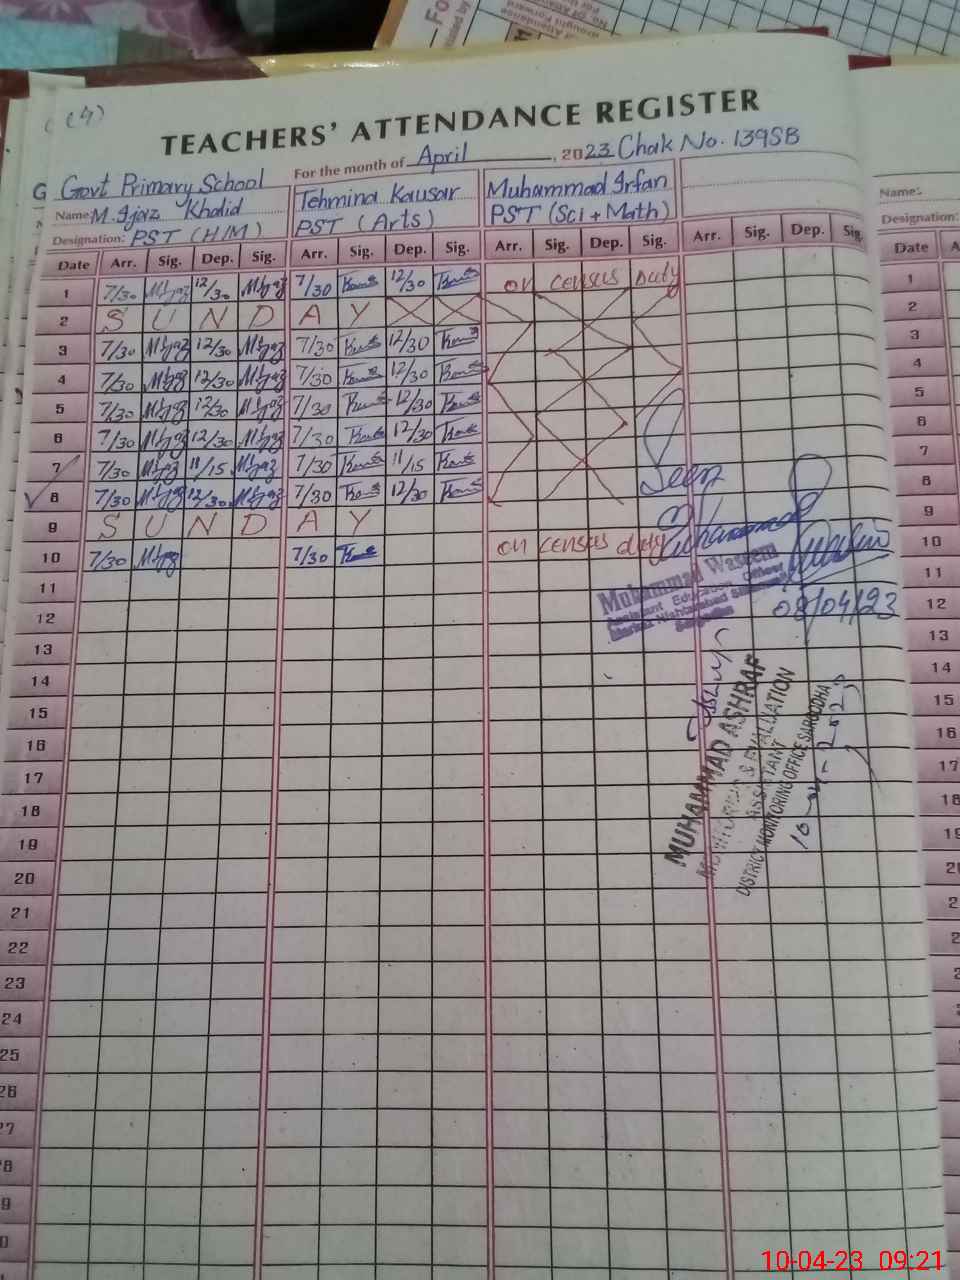 (4)
TEACHERS' ATTENDANCE REGISTER
For the month of April, 2023 Chak No. 139SB
Govt Primary School
Name: M. Ijaz Khalid Tehmina Kausar Muhammad Irfan Name:
Designation: PST (H/M) PST (Arts) PST (Sci + Math) Designation:
Date Arr. Sig. Dep. Sig. Arr. Sig. Dep. Sig. Arr. Sig. Dep. Sig. Arr. Sig. Dep. Sig. Date
1 7/30 M.Ijaz 12/30 M.Ijaz 7/30 12/30 on census duty 1
2 S U N D A Y 2
3 7/30 M.Ijaz 12/30 M.Ijaz 7/30 12/30 3
4 7/30 M.Ijaz 12/30 M.Ijaz 7/30 12/30 4
5 7/30 M.Ijaz 12/30 M.Ijaz 7/30 12/30 5
6 7/30 M.Ijaz 12/30 M.Ijaz 7/30 12/30 6
7 7/30 M.Ijaz 11/15 M.Ijaz 7/30 11/15 7
8 7/30 M.Ijaz 12/30 M.Ijaz 7/30 12/30 Seen 8
9 S U N D A Y 9
10 7/30 M.Ijaz 7/30 on census duty Muhammad Wasim 10
11 Muhammad Waseem 11
Assistant Education Officer
12 08/04/23 12
13 13
14 14
15 MUHAMMAD ASHRAF 15
16 MONITORING & EVALUATION 16
17 ASSISTANT 17
18 DISTRICT MONITORING OFFICE SARGODHA 18
19 10-04-2023 19
20
21
22
23
24
25
26
10-04-23 09:21